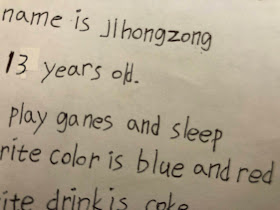 name is Jihongzong
13 years old.
play ganes and sleep
rite color is blue and red
ite drink is coke